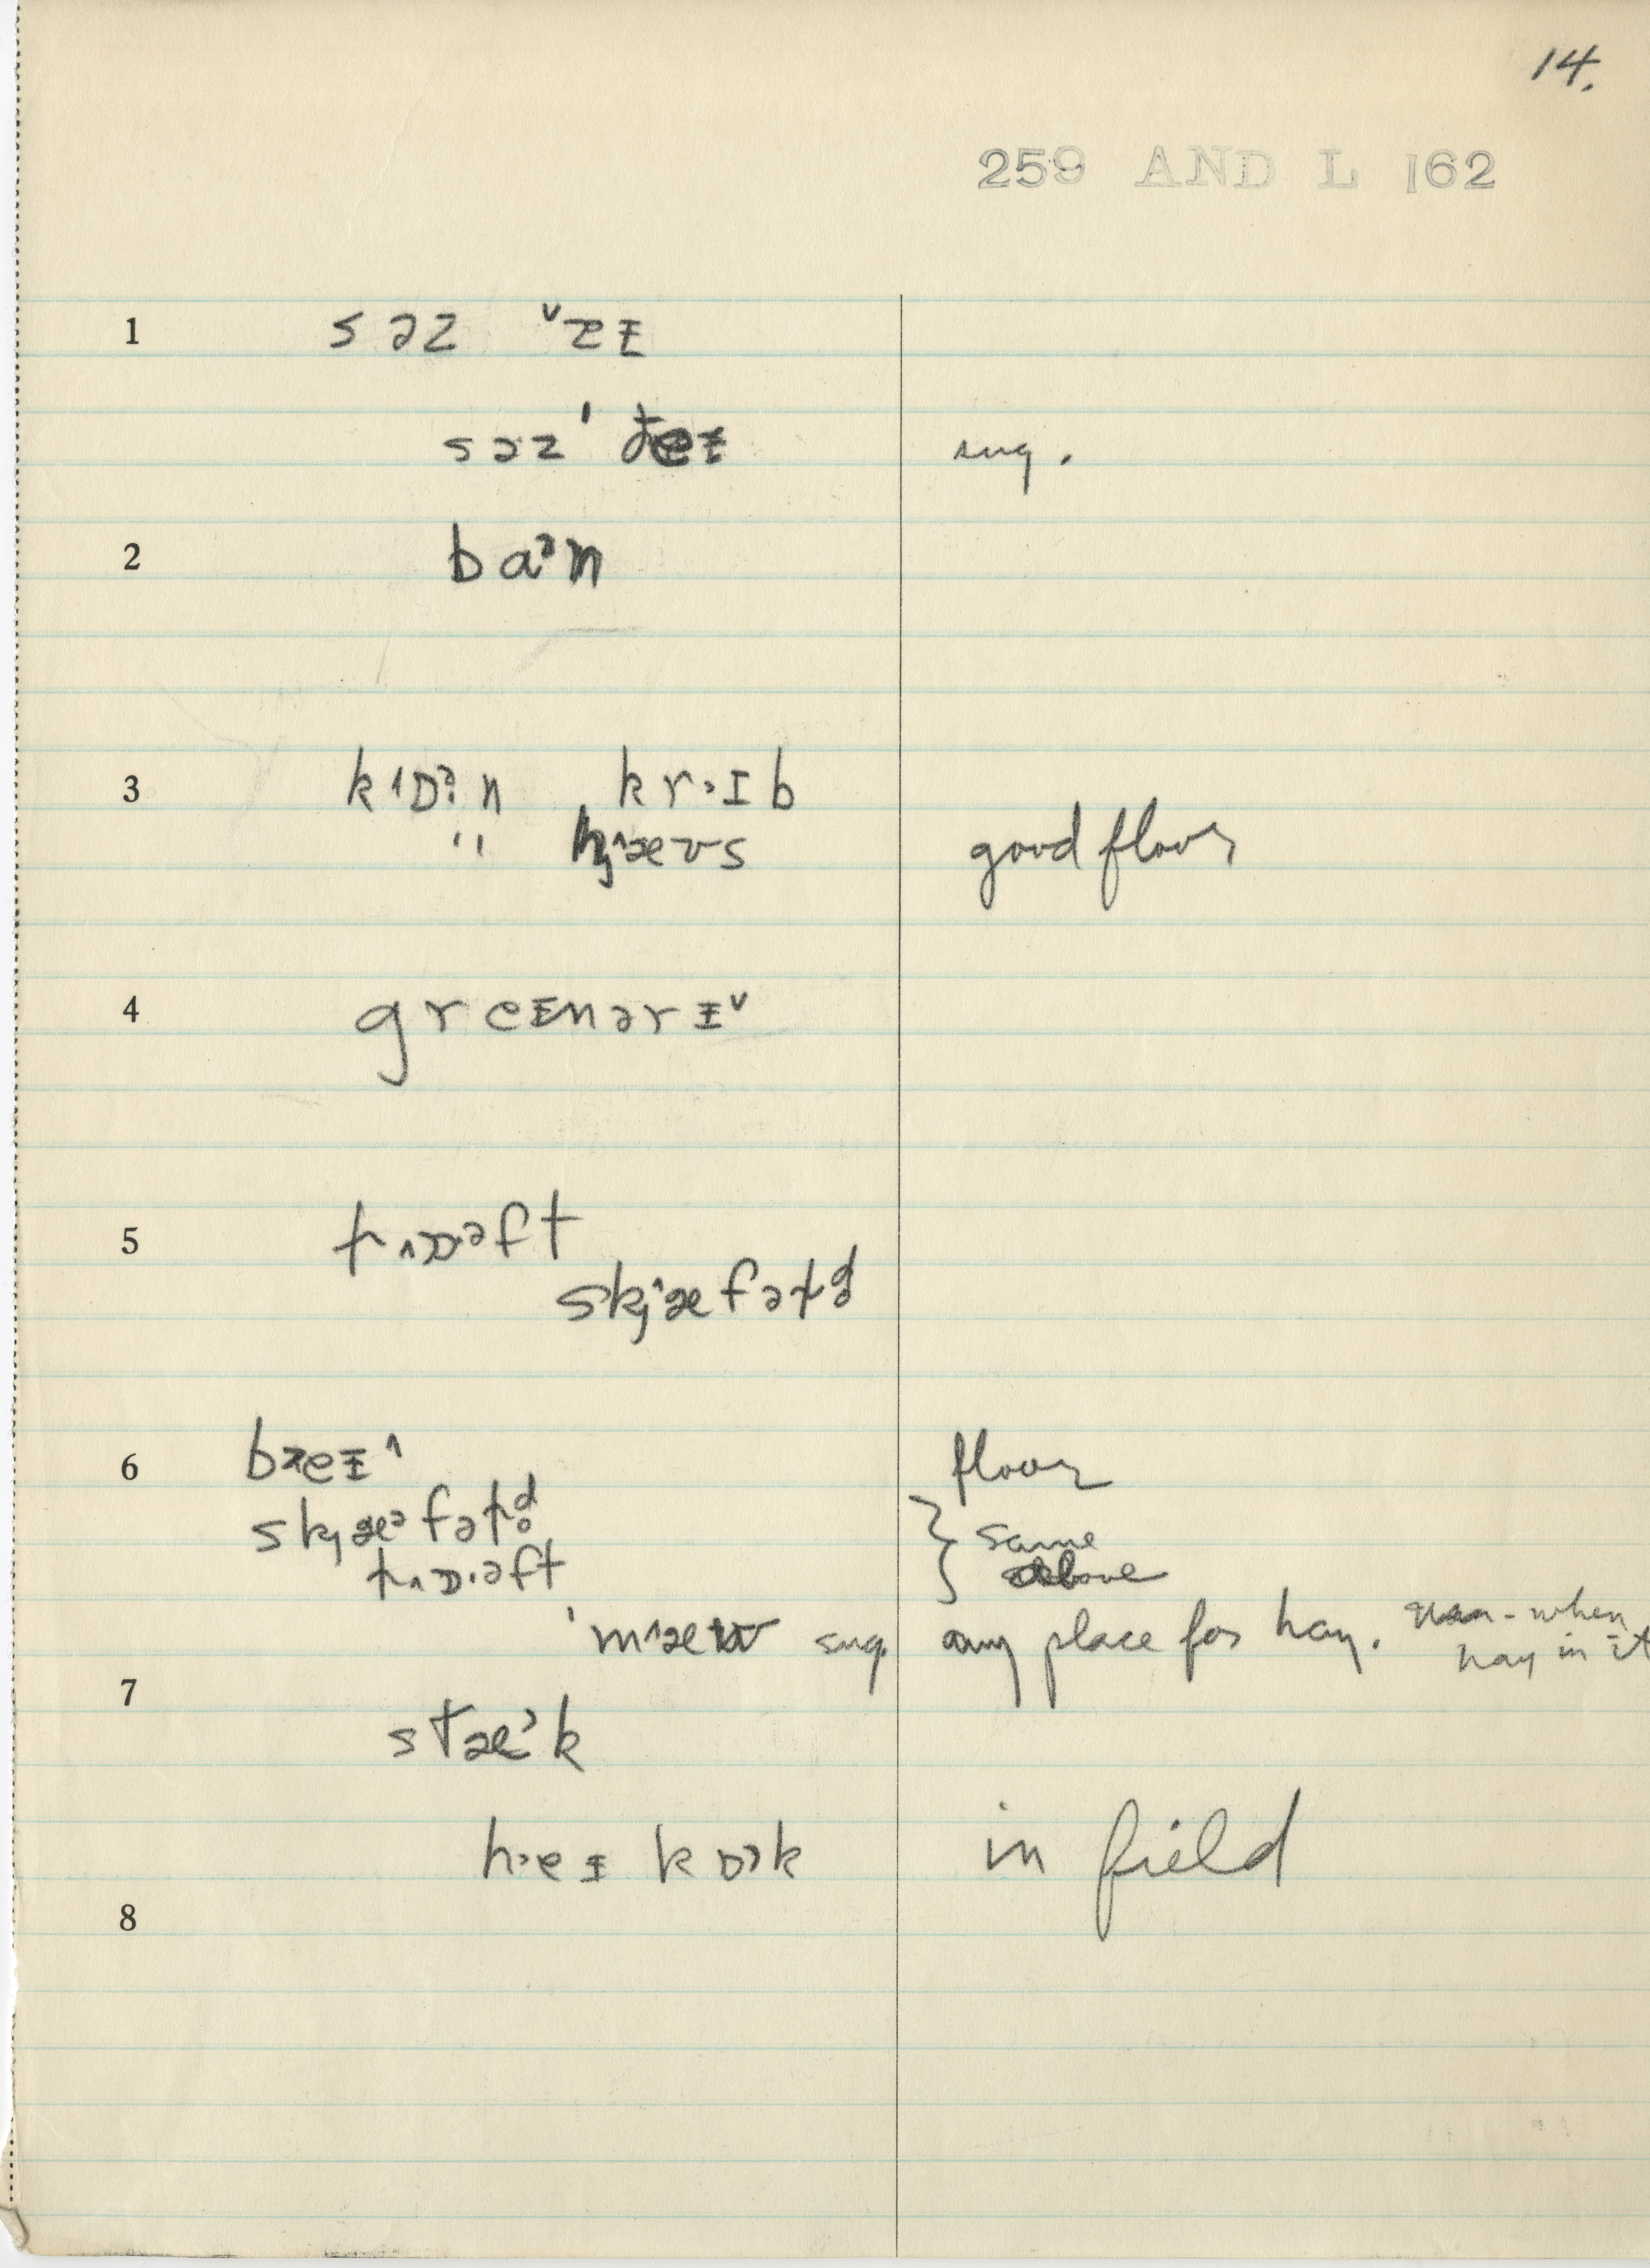 14.
259 AND L 162
1 s ə z ˅ɪ
s ə z ' sug.
2 b a ᵊ n
3 k ˄ɒ·ᵊ n k r ɪ b
" h ˄æ ʊ s good floor
4 g r e ɪ n ə r ɪ ˅
5 l ˄ɒ·ᵊ f t
s k j ˄æ f ə l d
6 b e ɪ ˄ floor
s k j æ ᵊ f ə l d same
l ˄ ɒ· ə f t above
' m ˄æ ʊ sug. any place for hay. when
hay in it
7
s t æ ᵊ k
h·e ɪ k ɒ k in field
8